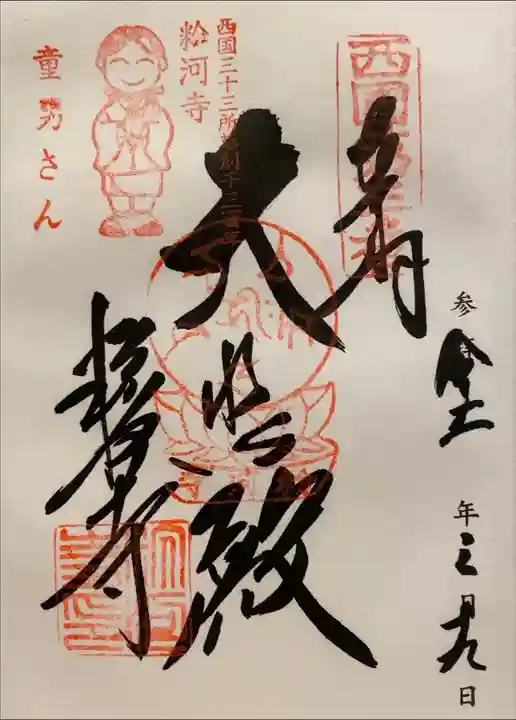 奉拝
西国第三番
大悲殿
西国三十三所草創千三百年
粉河寺
粉河寺
童男さん
年三月十九日